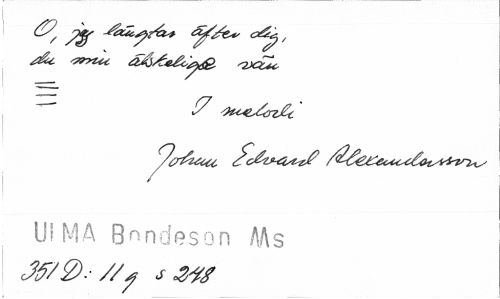 O, jag längtar äfter dig,
du min älskelige vän
I melodi
Johan Edvard Alexandersson
ULMA Bondeson Ms
351 D: 11 q s 248